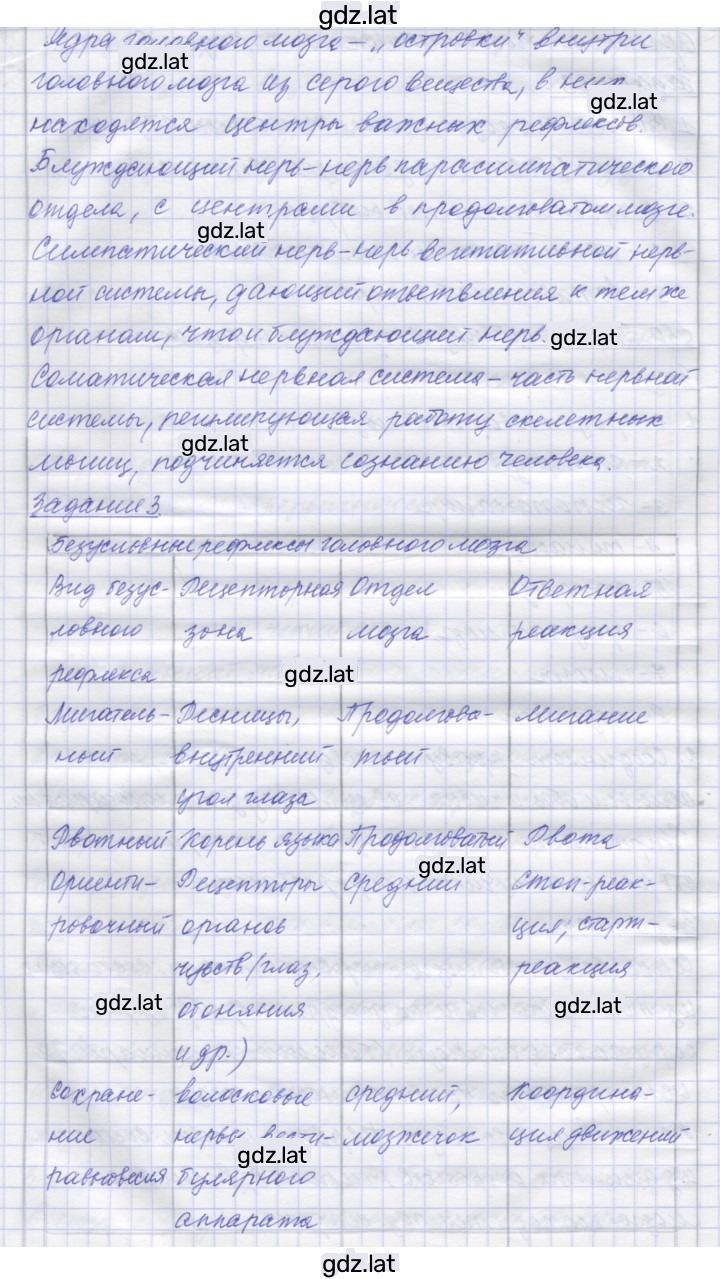 gdz.lat
Ядра головного мозга – „островки" внутри
gdz.lat
головного мозга из серого вещества, в них
gdz.lat
находятся центры важных рефлексов.
Блуждающий нерв – нерв парасимпатического
отдела, с центрами в продолговатом мозге.
gdz.lat
Симпатический нерв – нерв вегитативной нерв-
ной системы, дающий ответвления к тем же
органам, что и блуждающий нерв.
gdz.lat
Соматическая нервная система – часть нервной
системы, регулирующая работу скелетных
gdz.lat
мышц, подчиняется сознанию человека.
Задание 3.
Безусловные рефлексы головного мозга
Вид безус- Рецепторная Отдел Ответная
ловного зона мозга реакция
рефлекса
gdz.lat
Мигатель- Ресницы, Продолгова- Мигание
ный внутренний тый
угол глаза
Рвотный Корень языка Продолговатый Рвота
gdz.lat
Ориенти- Рецепторы Средний Стоп-реак-
ровочный органов ция, старт-
чувств (глаз, реакция
gdz.lat
обоняния
gdz.lat
и др.)
сохране- волосковые средний, Координа-
ние нервы вести- мозжечок ция движений
gdz.lat
равновесия булярного
аппарата
gdz.lat